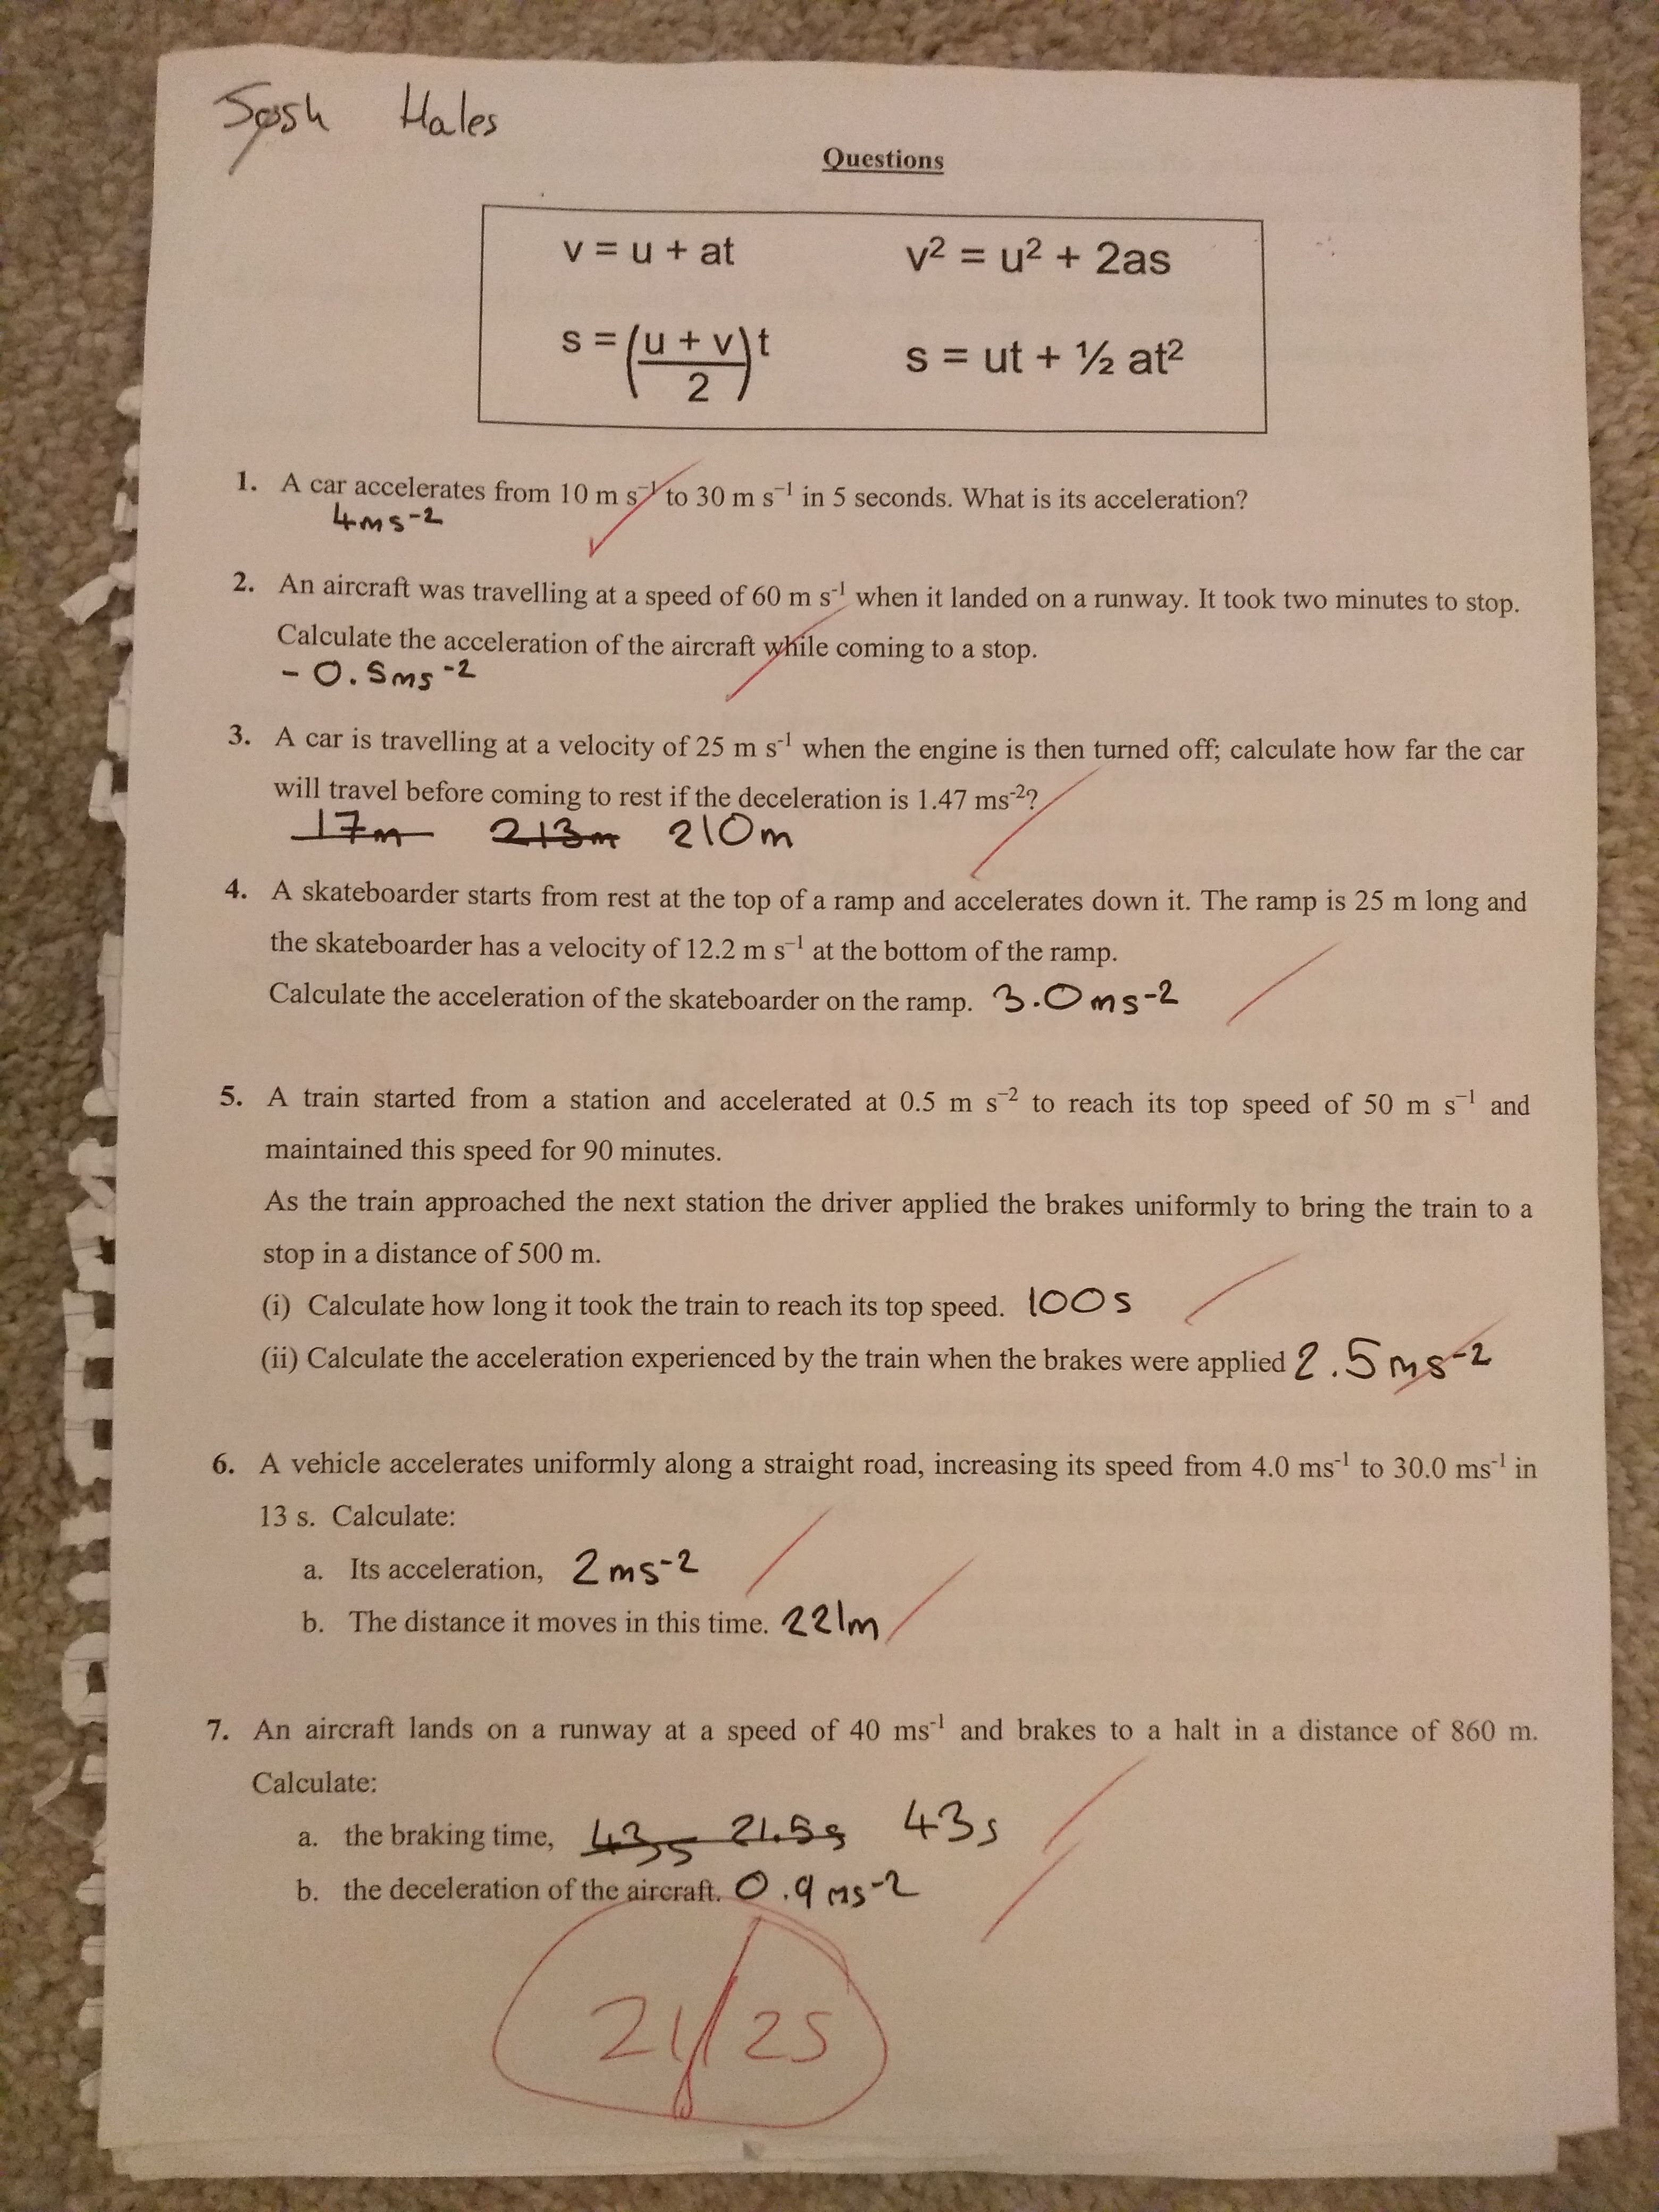 Josh Hales
Questions
v = u + at
v² = u² + 2as
s = (u + v / 2) t
s = ut + ½ at²
1. A car accelerates from 10 m s⁻¹ to 30 m s⁻¹ in 5 seconds. What is its acceleration?
4ms⁻²
2. An aircraft was travelling at a speed of 60 m s⁻¹ when it landed on a runway. It took two minutes to stop.
Calculate the acceleration of the aircraft while coming to a stop.
- 0.5ms⁻²
3. A car is travelling at a velocity of 25 m s⁻¹ when the engine is then turned off; calculate how far the car
will travel before coming to rest if the deceleration is 1.47 ms⁻²?
17m 213m 210m
4. A skateboarder starts from rest at the top of a ramp and accelerates down it. The ramp is 25 m long and
the skateboarder has a velocity of 12.2 m s⁻¹ at the bottom of the ramp.
Calculate the acceleration of the skateboarder on the ramp. 3.0ms⁻²
5. A train started from a station and accelerated at 0.5 m s⁻² to reach its top speed of 50 m s⁻¹ and
maintained this speed for 90 minutes.
As the train approached the next station the driver applied the brakes uniformly to bring the train to a
stop in a distance of 500 m.
(i) Calculate how long it took the train to reach its top speed. 100s
(ii) Calculate the acceleration experienced by the train when the brakes were applied 2.5ms⁻²
6. A vehicle accelerates uniformly along a straight road, increasing its speed from 4.0 ms⁻¹ to 30.0 ms⁻¹ in
13 s. Calculate:
a. Its acceleration, 2ms⁻²
b. The distance it moves in this time. 221m
7. An aircraft lands on a runway at a speed of 40 ms⁻¹ and brakes to a halt in a distance of 860 m.
Calculate:
a. the braking time, 43s 21.5s 43s
b. the deceleration of the aircraft. 0.9ms⁻²
21/25